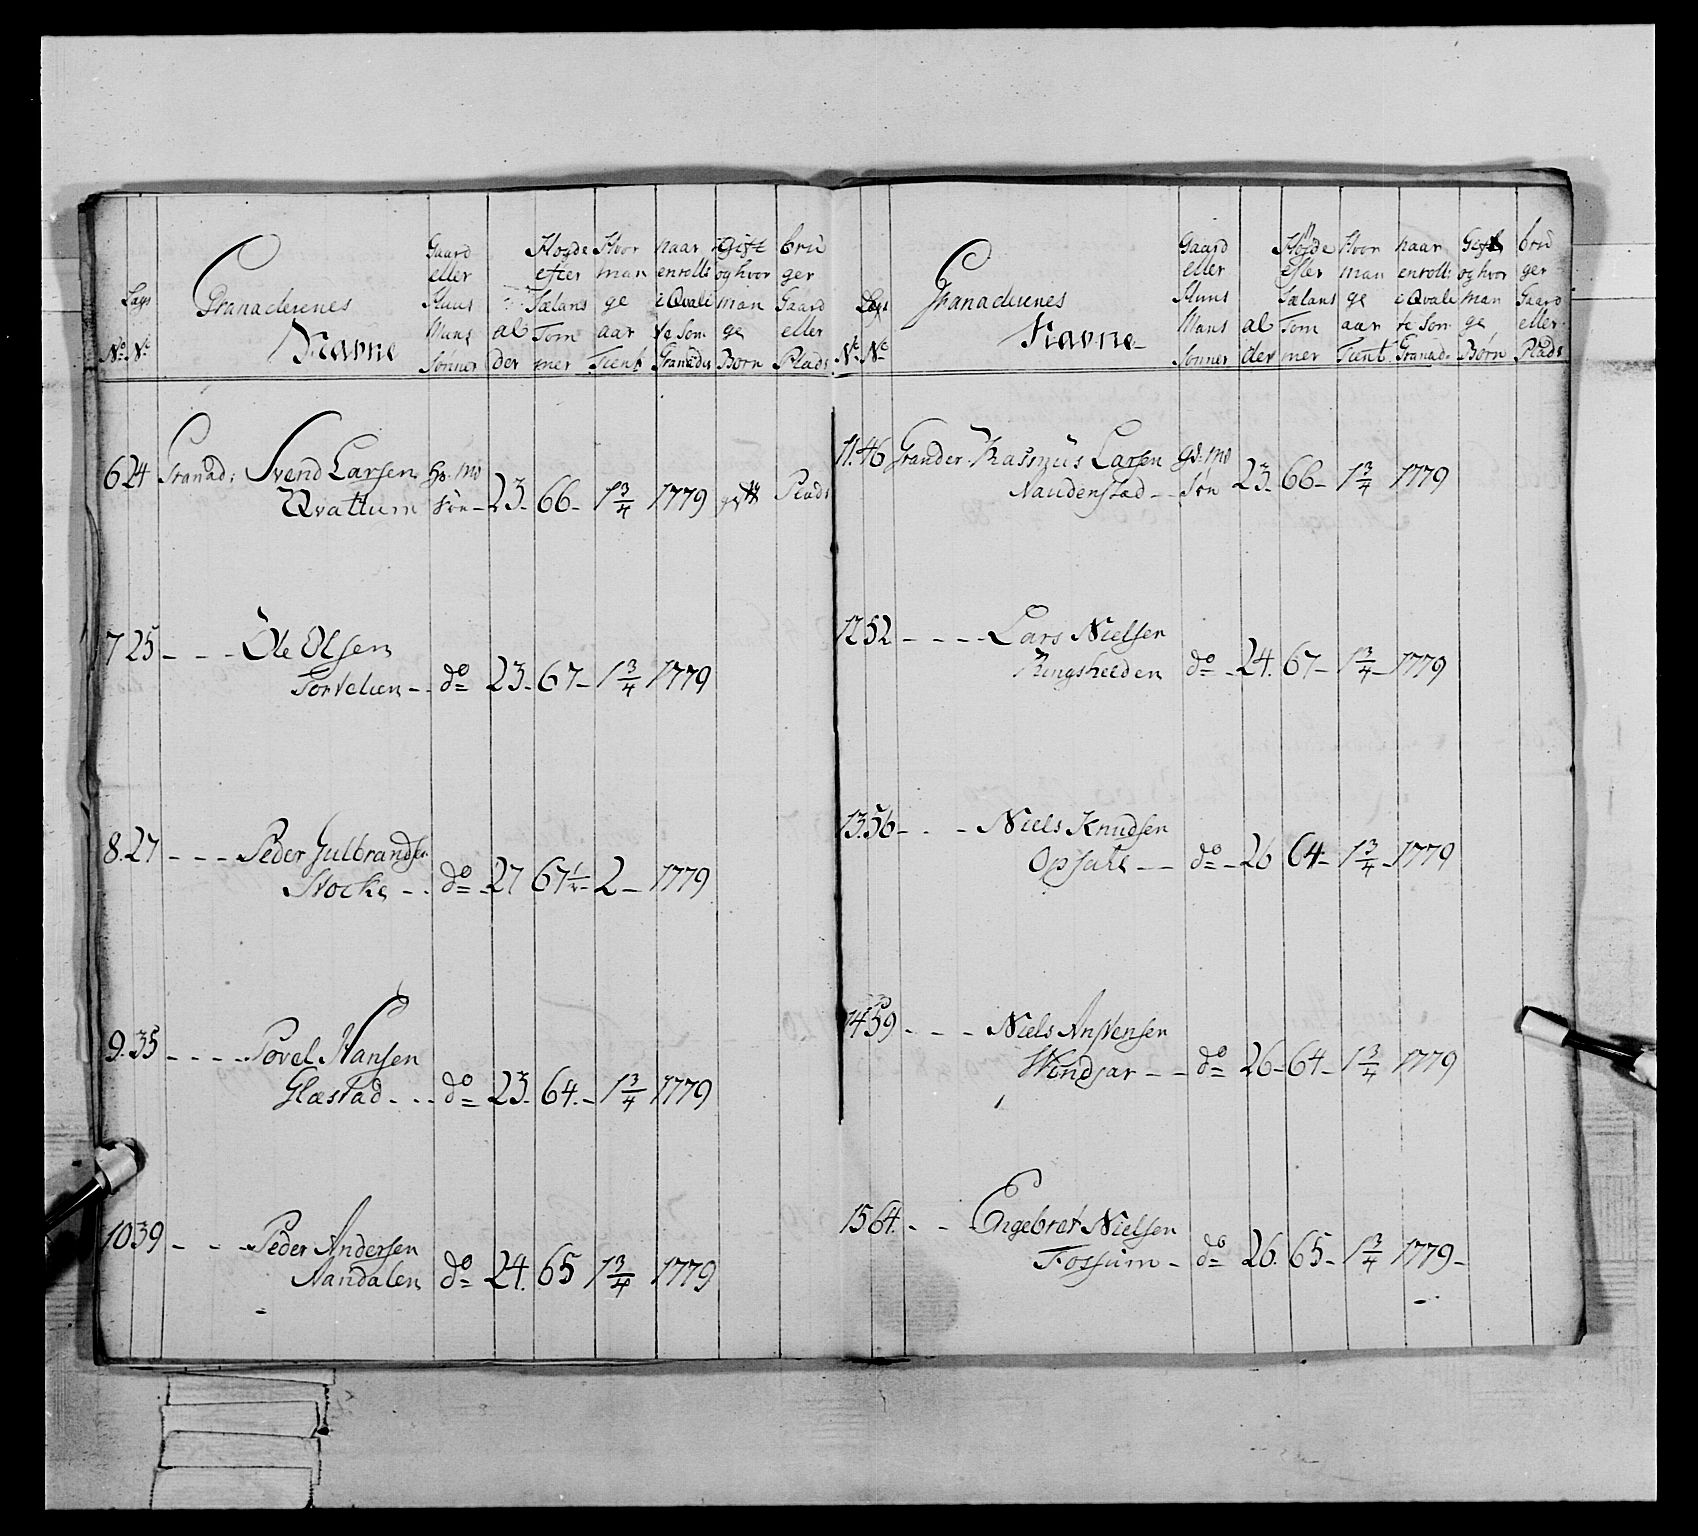 Lægs
No. No.
Granaderenes
Navne
Gaard
eller
Huus
Mans
Sønner
al
der
Høyde
efter
Sælans
Tom
mer
Hvor
man
ge
aar
Tient
naar
enrolls
i Qvali
te Som
Granader
Gift
og hvor
man
ge
Børn
brü
ger
Gaard
eller
Plads
6 24 Granad: Svend Larsen
Qvattum
Søn - 23. 66 - 1 3/4 1779 gift Plads
7 25 - - - Ole Olsen
Torvelien - - do 23. 67 - 1 3/4 1779
8. 27 - - - Peder Gulbrandsen
Stocke - - do - 27 67 1/2 - 2 - 1779
9. 35 - - - - Povel Hansen
Glæstad - - - do 23. 64. - 1 3/4 1779
10 39 - - - Peder Andersen
Nandalen do 24. 65 1 3/4 1779
Lægs
No. No.
Granaderenes
Navne
Gaard
eller
Huus
Mans
Sønner
al
der
Høyde
efter
Sælans
Tom
mer
Hvor
man
ge
aar
Tient
naar
enroll:
i Qvali
te Som
Granad.
Gift
og hvor
man
ge
Børn
brü
ger
Gaard
eller
Plads
11. 46 Grander. Rasmus Larsen
Naudenstad - - Søn 23. 66 - 1 3/4 1779
12 52 - - - - Lars Nielsen
Ringshelden do - 24. 67 - 1 3/4 - 1779
13. 56 - - - Niels Knudsen
Opsahl - - do - 26 64 - 1 3/4 - 1779
14 59 - - - Niels Anstensen
Windjar - - do 26 - 64 - 1 3/4 1779
15 64. - - Engebret Nielsen
Fossum - do 26. 65 - 1 3/4 1779 -